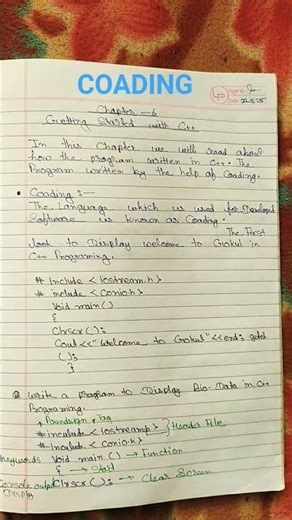 COADING
Page No. 2
Date 22.8.25
Chapter - 6
Getting Started with C++
In this Chapter we will read about
how the program written in C++. The
Program written by the help of Coading.
• Coading :-
The Language which is used for Developed
Software is known as Coading.
The First
look to Display welcome to Gokul in
C++ Programing.
# Include < iostream.h>
# include < conio.h>
Void main()
{
Chrscr();
Cout<<"welcome to Gokul"<<end; getch
();
}
Q write a program to Display Bio-Data in C++
Programing.
Poundsign Tag
# include < iostream> } Header File
# Include < conio.h>
Keywords Void main () → Function
{ → Start
Console output Clrscr(); → Clear Screen.
Display